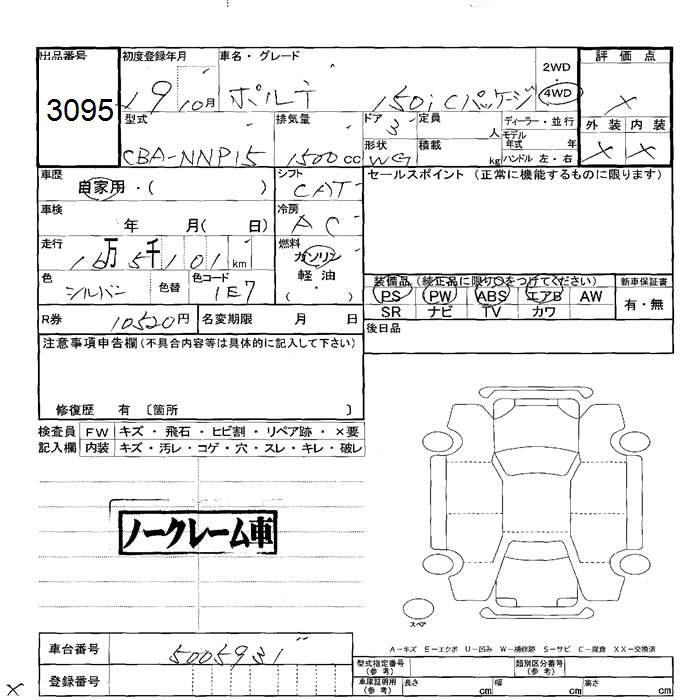 出品番号
3095
初度登録年月
19 10月
車名・グレード
ポルテ 150i Cパッケージ
2WD
4WD
評価点
X
外装 内装
X X
型式
CBA-NNP15
排気量
1500 cc
ドア 3
定員 人
形状 WG
積載 kg
ディーラー・並行
モデル年式 年
ハンドル 左・右
車歴
自家用・( )
シフト
CAT
セールスポイント (正常に機能するものに限ります)
車検
年 月( 日)
冷房
AC
走行
16万5千101 km
燃料
ガソリン
軽油
( ・ )
色
シルバー
色替
色コード
1E7
装備品 (純正品に限り○をつけてください)
PS PW ABS エアB AW
SR ナビ TV カワ
新車保証書
有・無
R券 10520円
名変期限 月 日
後日品
注意事項申告欄(不具合内容等は具体的に記入して下さい)
修復歴 有 〔箇所 〕
検査員 FW キズ・飛石・ヒビ割・リペア跡・×要
記入欄 内装 キズ・汚レ・コゲ・穴・スレ・キレ・破レ
ノークレーム車
スペア
A-キズ E-エクボ U-凹み W-補修跡 S-サビ C-腐食 XX-交換済
車台番号
5005931
登録番号
型式指定番号
(参考)
類別区分番号
(参考)
車庫証明用
(参考)
長さ cm
幅 cm
高さ cm
X